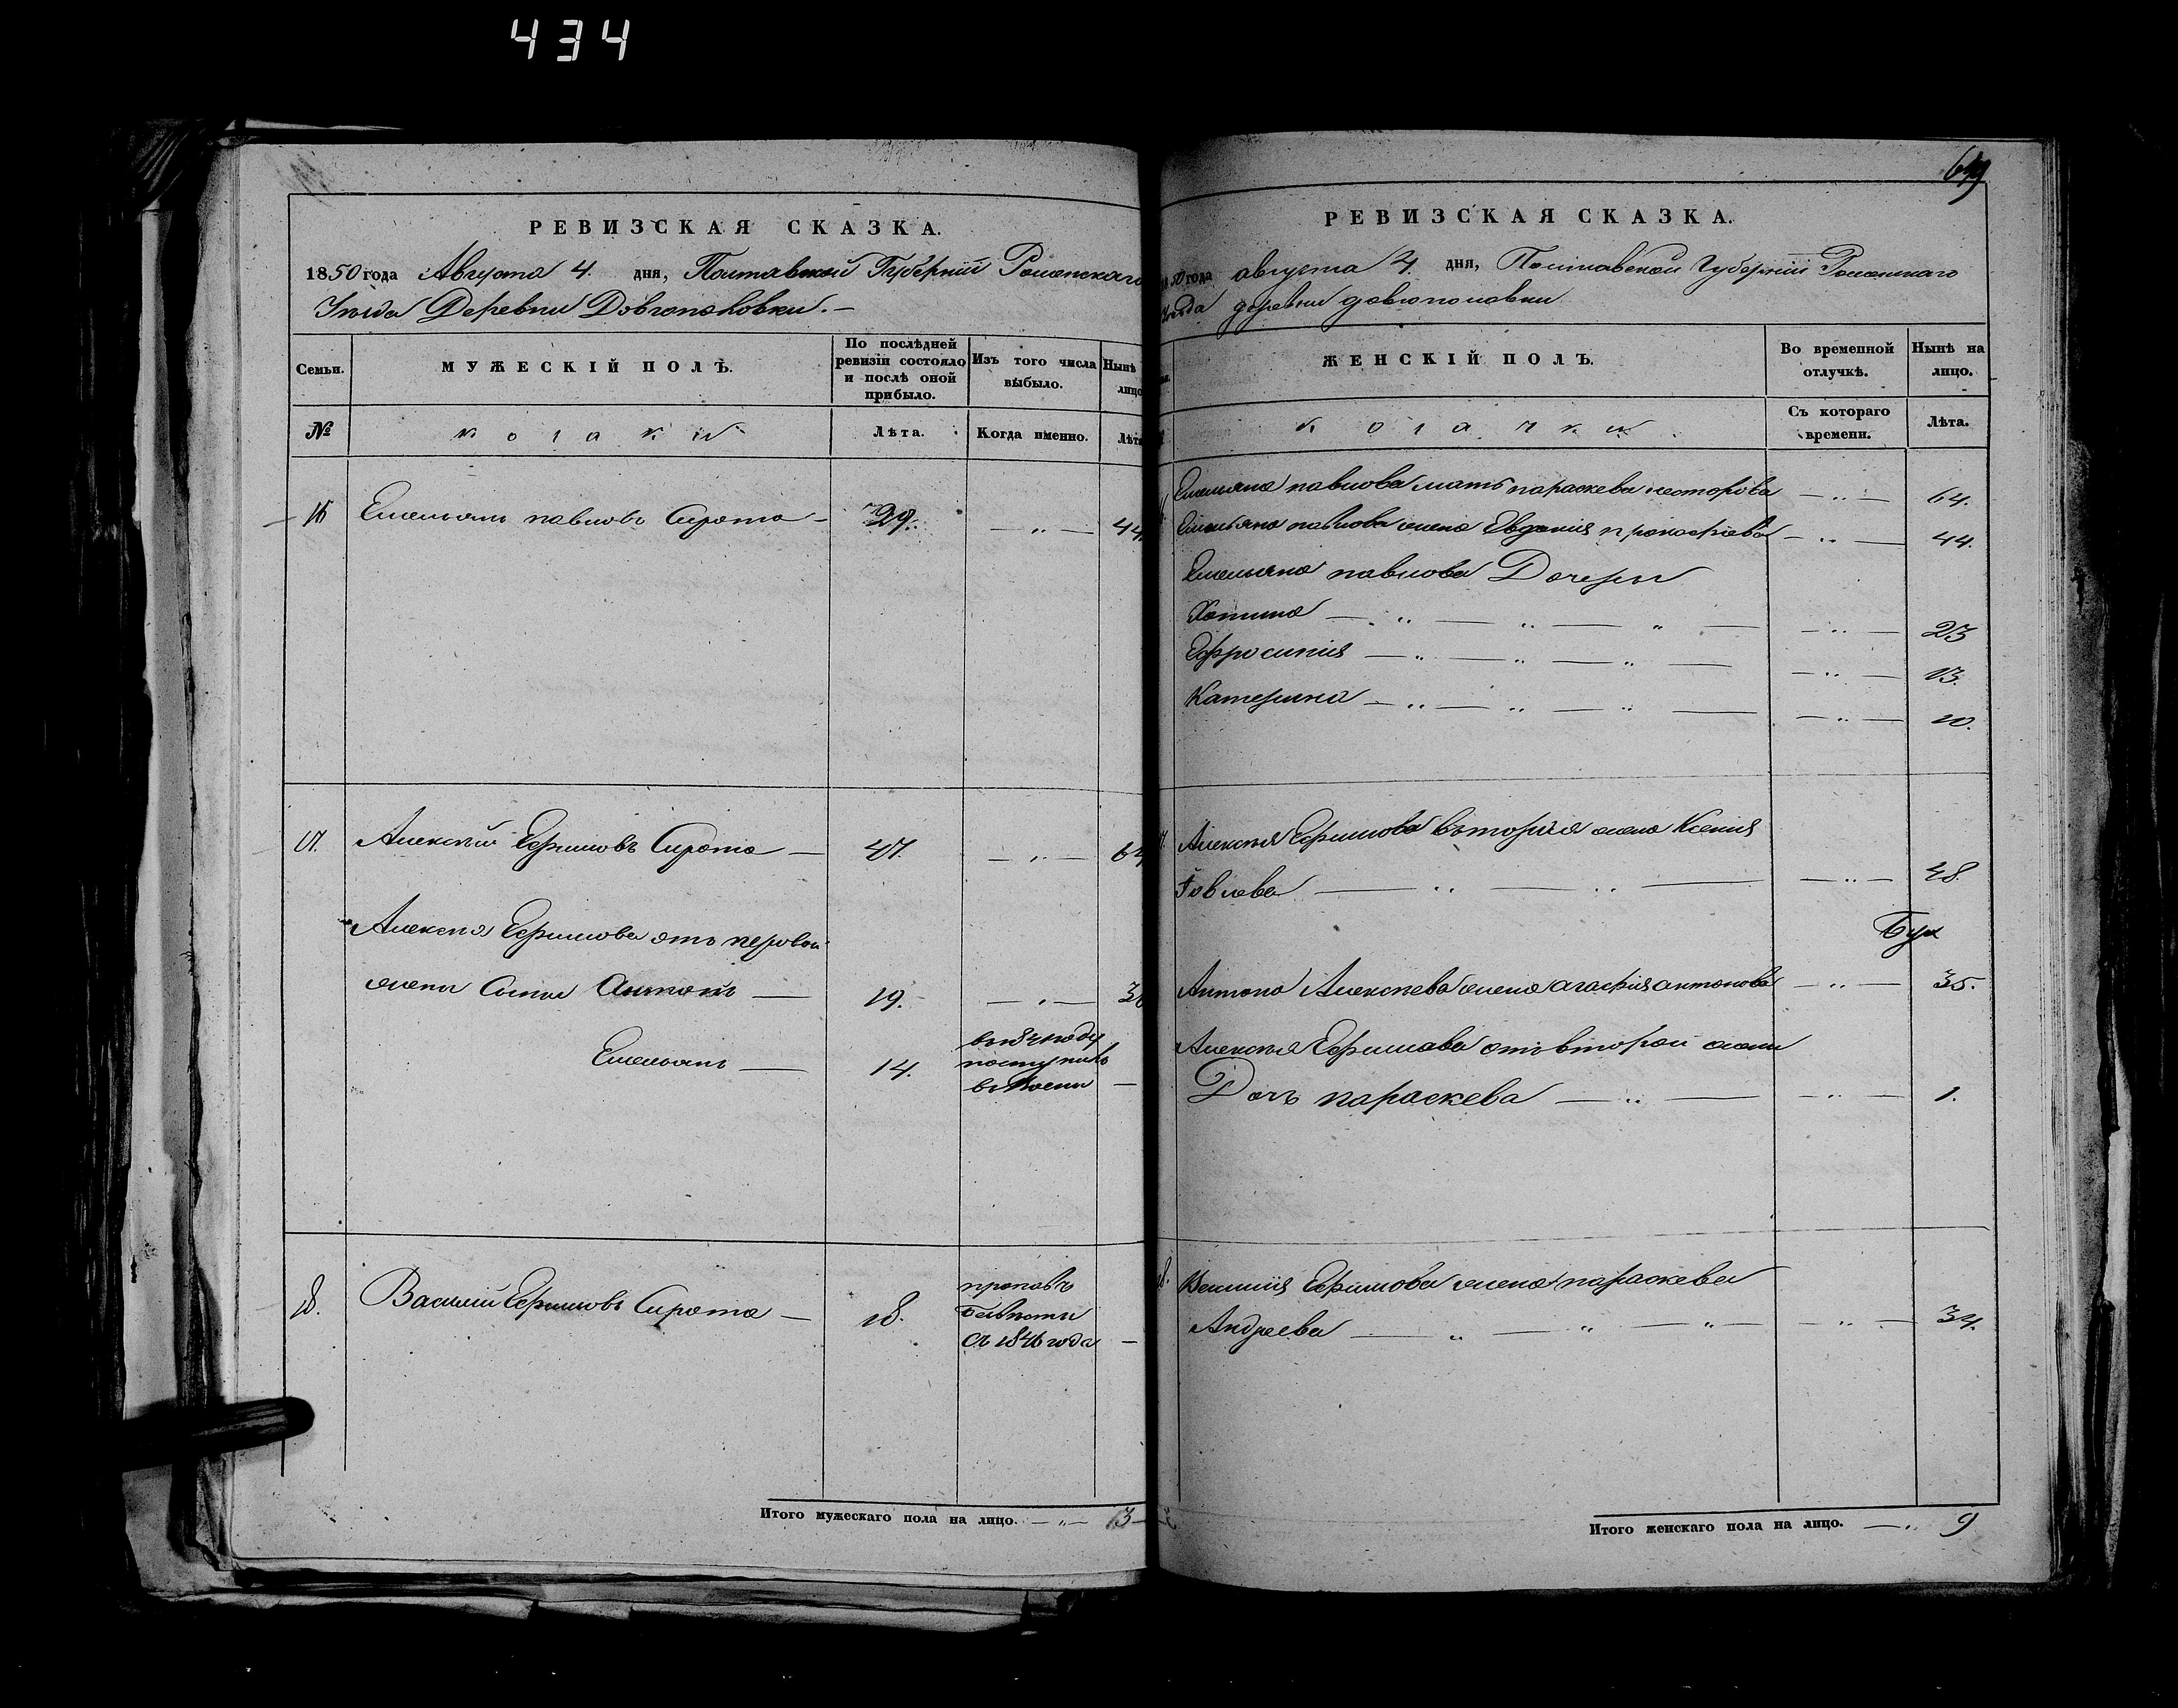 434
РЕВИЗСКАЯ СКАЗКА.
1850 года Августа 4. дня, Полтавской Губернiи Роменскаго
Уѣзда Деревни Довгополовки.
Семьи. МУЖЕСКІЙ ПОЛЪ. По послѣдней ревизіи состояло и послѣ оной прибыло. Изъ того числа выбыло. Нынѣ лицо
№ козаки Лѣта. Когда именно. Лѣта
16 Емельянъ павловъ Сирота 29. 44
17. Алексѣй Ефимовъ Сирота 47. 64
Алексѣя Ефимова отъ первой
жены Сыны Антонъ 19.
Емельянъ 14.
поступилъ
18. Василий Ефимовъ Сирота 18.
пропавъ
безвѣсти
съ 1846 года
Итого мужескаго пола на лицо. 3
649
РЕВИЗСКАЯ СКАЗКА.
1850 года августа 4 дня, Полтавской Губернiи Роменскаго
Уѣзда деревни довгополовки
ЖЕНСКІЙ ПОЛЪ. Во временной отлучкѣ. Нынѣ на лицо.
козачки Съ котораго времени. Лѣта.
Емельяна павлова мать параскева несторова 64.
Емельяна павлова жена Евдокия прокофиева 44.
Емельяна павлова Дочеры
Хотина 23
Ефросиния 13.
Катерина 10.
Алексѣя Ефимова вторая жена Ксения
Іовлева 48.
Антона Алексѣева жена агафия антонова 35.
Алексѣя Ефимова отъ второй жены
Дочь параскева 1.
18. Василия Ефимова жена параскева
Андреева 34.
Итого женскаго пола на лицо. 9